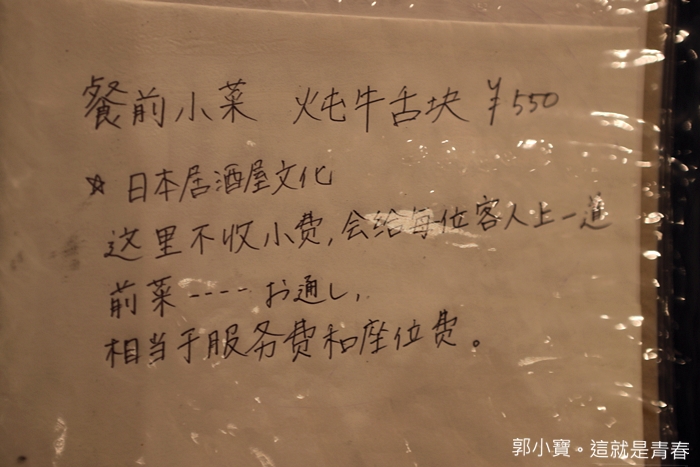 餐前小菜 炖牛舌块 ¥550
☆ 日本居酒屋文化
这里不收小费,会给每位客人上一道
前菜----お通し,
相当于服务费和座位费。
郭小寶。這就是青春